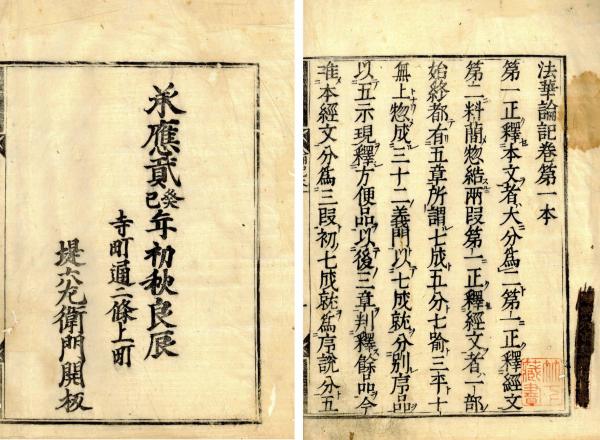 法華論記卷第一本
第一正釋本文者大分爲二第一正釋經文
第二料蕳惣結兩叚第一正釋經文者一部
始終都有五章所謂七成五分七喻三平十
無上惣成三十二義門以七成就分別序品
以五示現釋方便品以後三章判釋餘品今
准本經文分爲三叚初七成就爲序說分五
藏書
承應貳癸巳年初秋良辰
寺町通二條上町
堤六左衛門開板